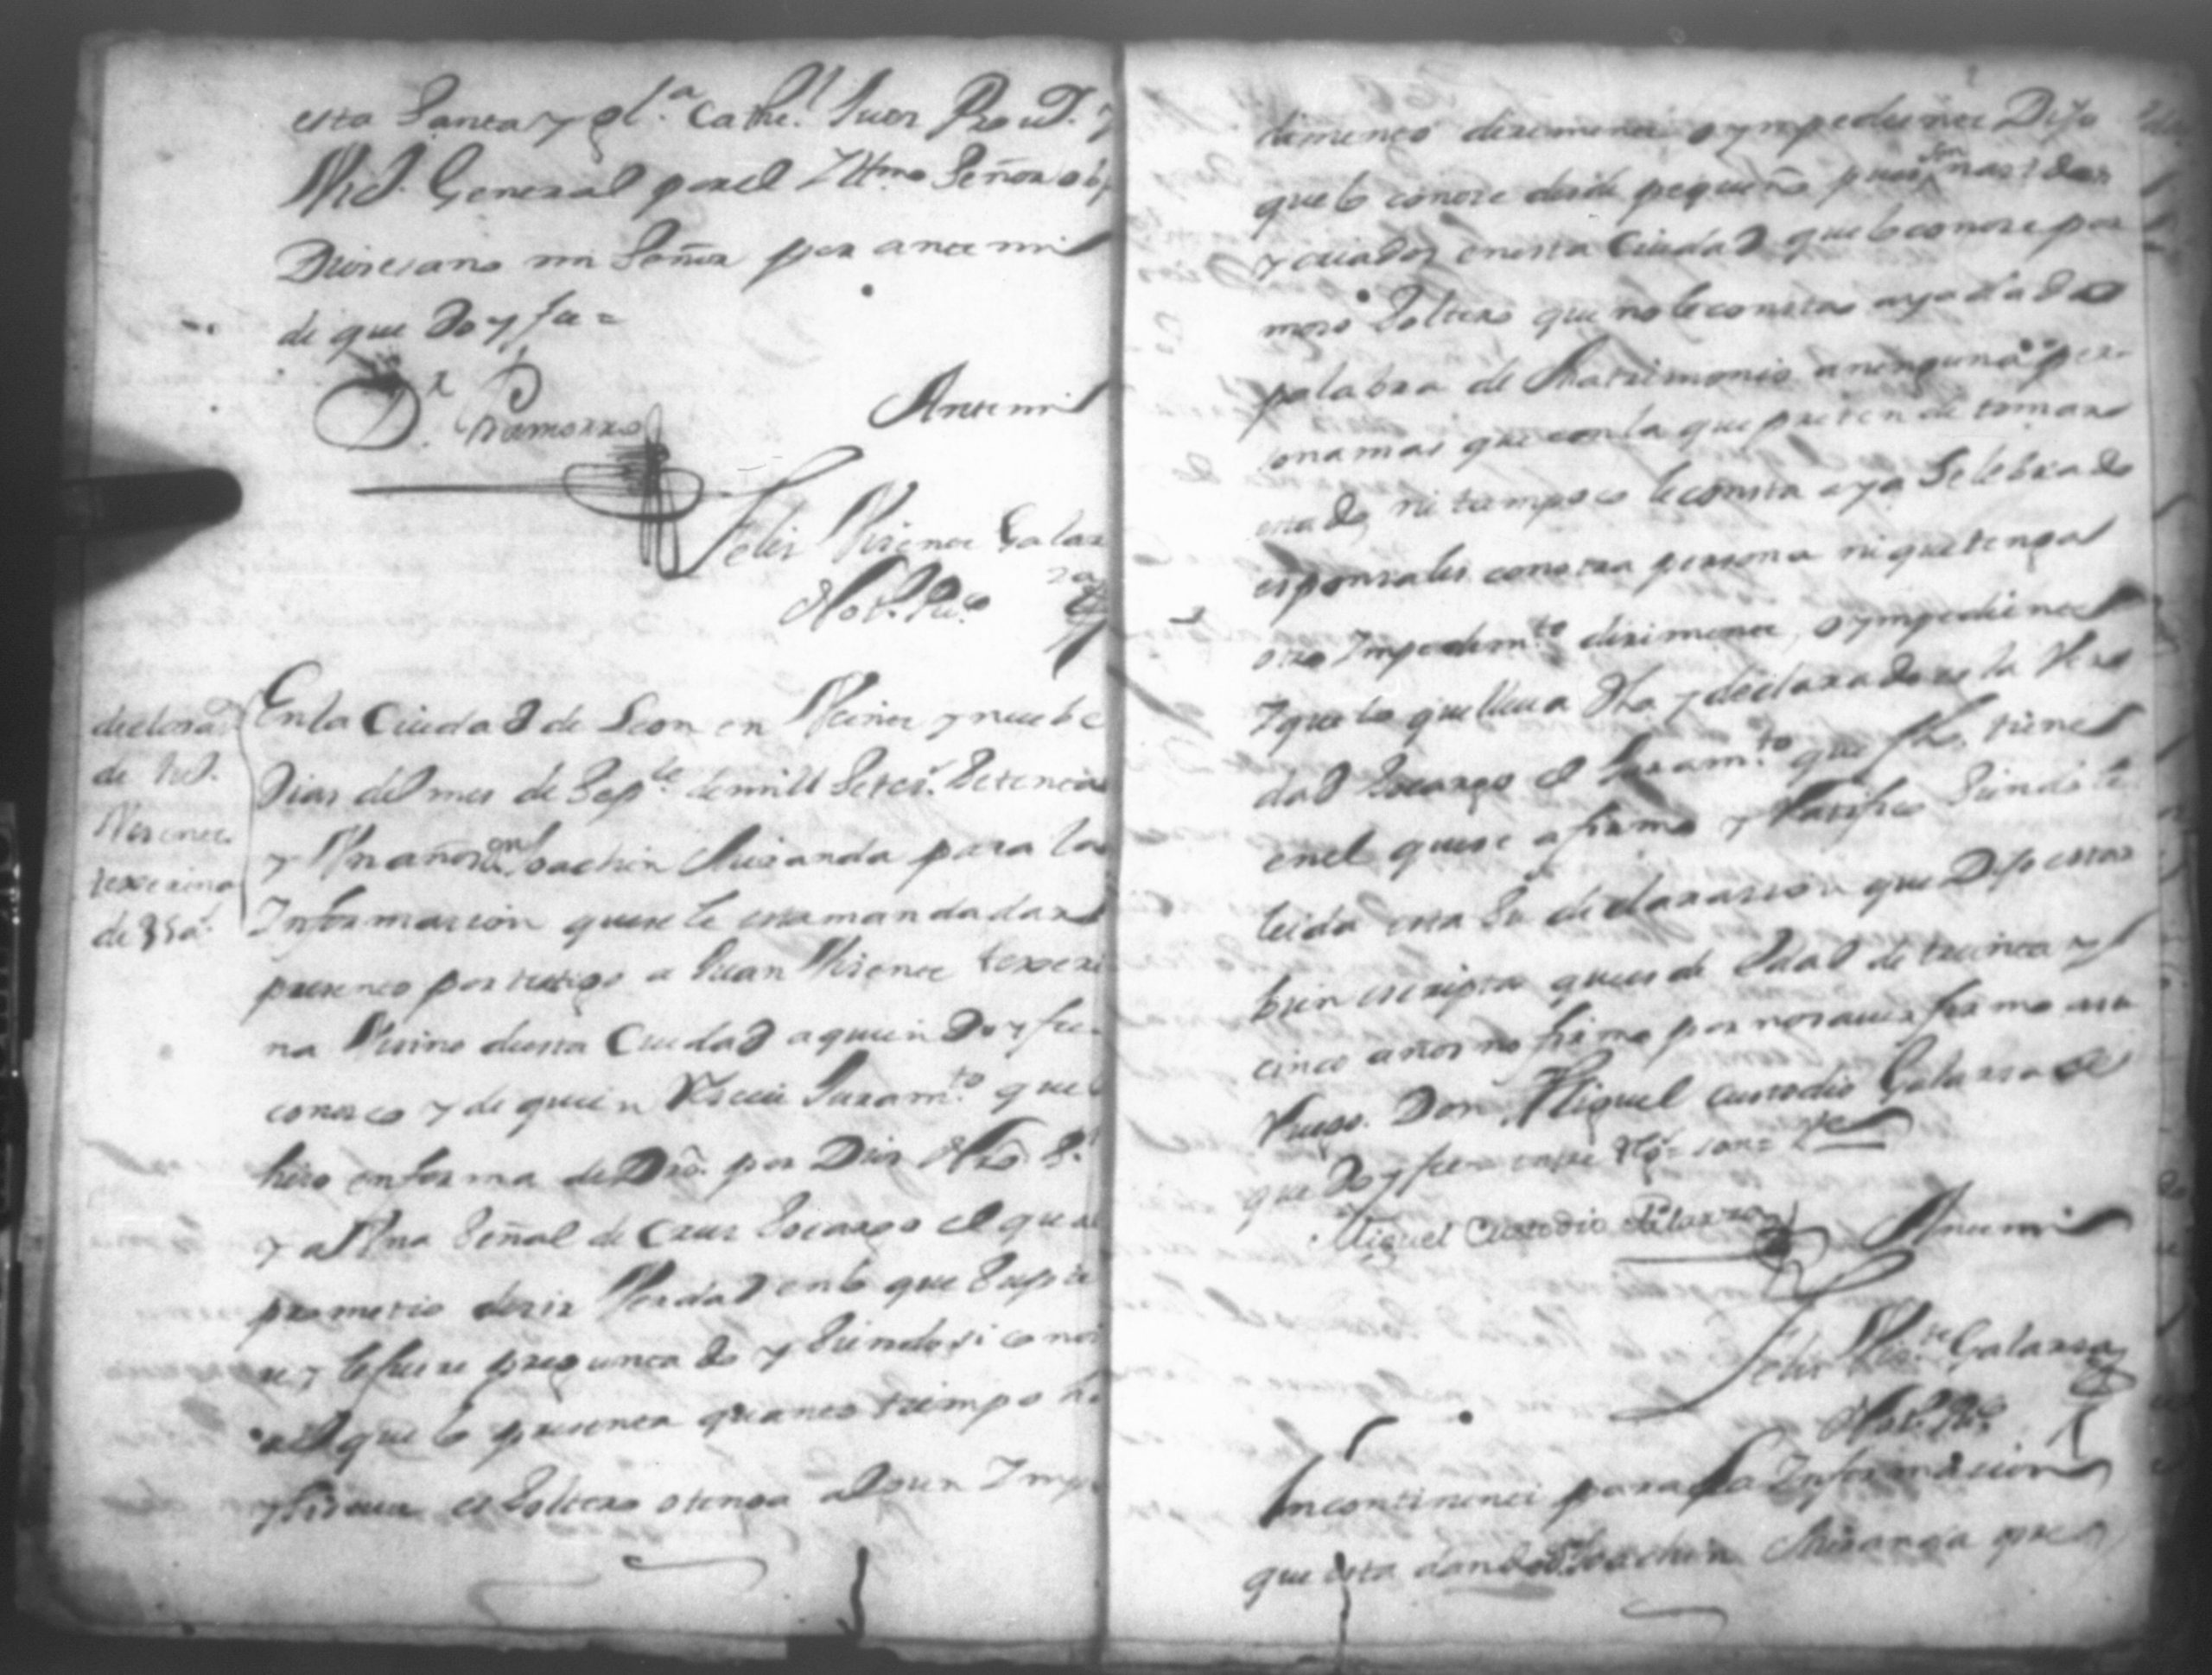 esta Santa Ygl.ª Cathe.l Juez Prov.r y
Vic.º General por el Yltmo Señor obp
Diocesano mi Señor por ante mi
de que Doy fee =
D.r Chamorro
Ante mi
Felis Visente Galar
za
Not. Pu.co
declaraz.n
de
Visente
texerina
de 35 a.s
En la Ciudad de Leon en Veinte y nuebe
Dias del mes de Sep.te de mill Setes.s Setenta
y Vn años on Joachin Miranda para la
Informacion que se le esta mandada dar
presento por testigo a Juan Visente texeri
na Vesino desta Ciudad a quien Doy fee
conosco y de quien Resevi Juram.to que
hizo en forma de Dro. por Dios Nro. S.r
y a Vna Señal de Cruz So cargo el qual
prometio desir Verdad en lo que Supie
re y le fuere preguntado y Siendo si cono
se al que lo presenta quanto tiempo ha
y si save es Soltero o tenga algun Ympe
dimento dirimente o ympediente Dijo
que lo conose desde pequeño pues son nasidos
y criados en esta Ciudad que lo conose por
moso Soltero que no le consta aya dado
palabra de Matrimonio a ninguna per
sona mas que con la que pretende tomar
estado, ni tampoco le consta aya Selebrado
esponsales con otra persona ni que tenga
otro Ympedim.to dirimente, o ympediente
Y que lo que lleva dho. y declarado es la Ver
dad So cargo el Juram.to que fho. tiene
en el que se afirmo y Ratifico Siendole
leida esta Su declarasion que Dijo estar
bien escripta que es de Edad de treinta y
cinco años no firmo por no saver firmo a su
Ruego. Don Miguel Custodio Galarza de
que Doy fee = entre Rs. = son = Ve
Miguel Custodio Galarza
Ante mi
Felis Vis.te Galarza
Not. Pu.co
Yncontinenti para la Informacion
que esta dando Joachin Miranda pre